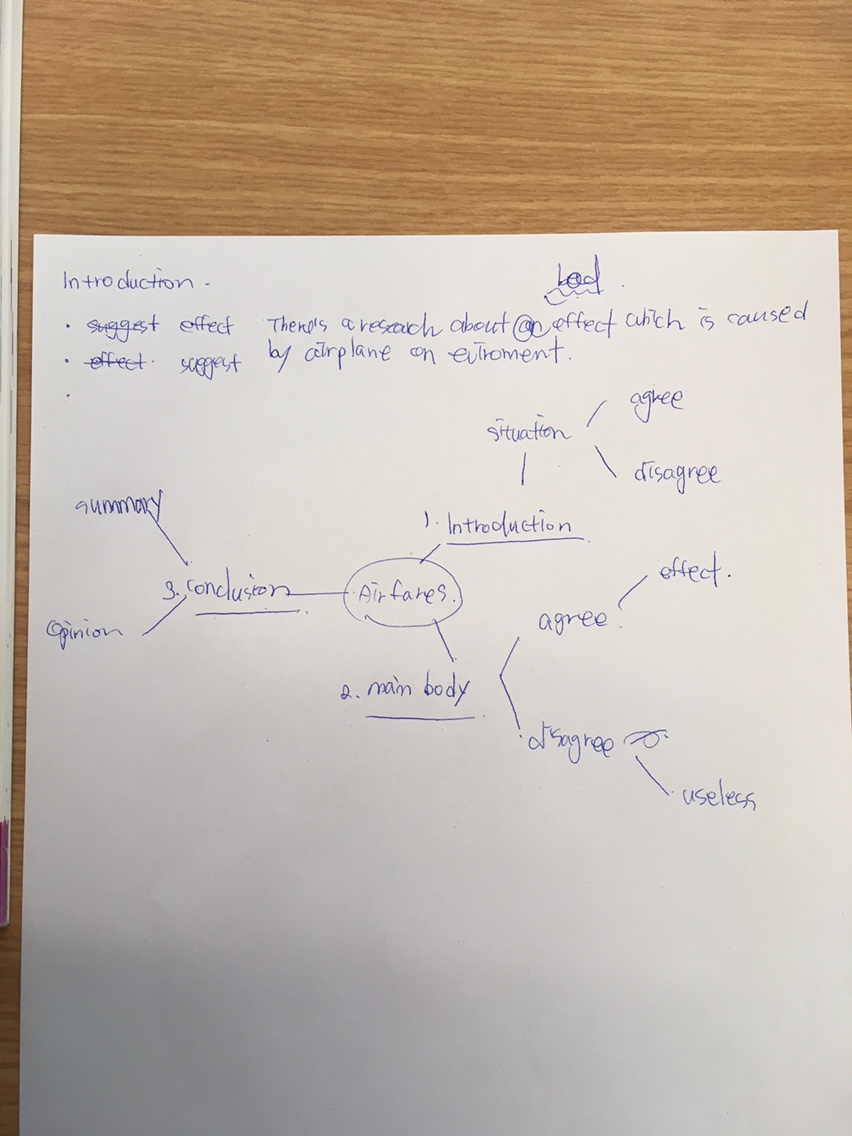 Introduction.
bad.
· suggest effect There's a research about an effect which is caused
· effect. suggest by airplane on eviroment.
·
agree
situation
disagree
summary
1. Introduction
effect.
3. conclusion
Airfares.
agree
Opinion
2. main body
disagree
useless